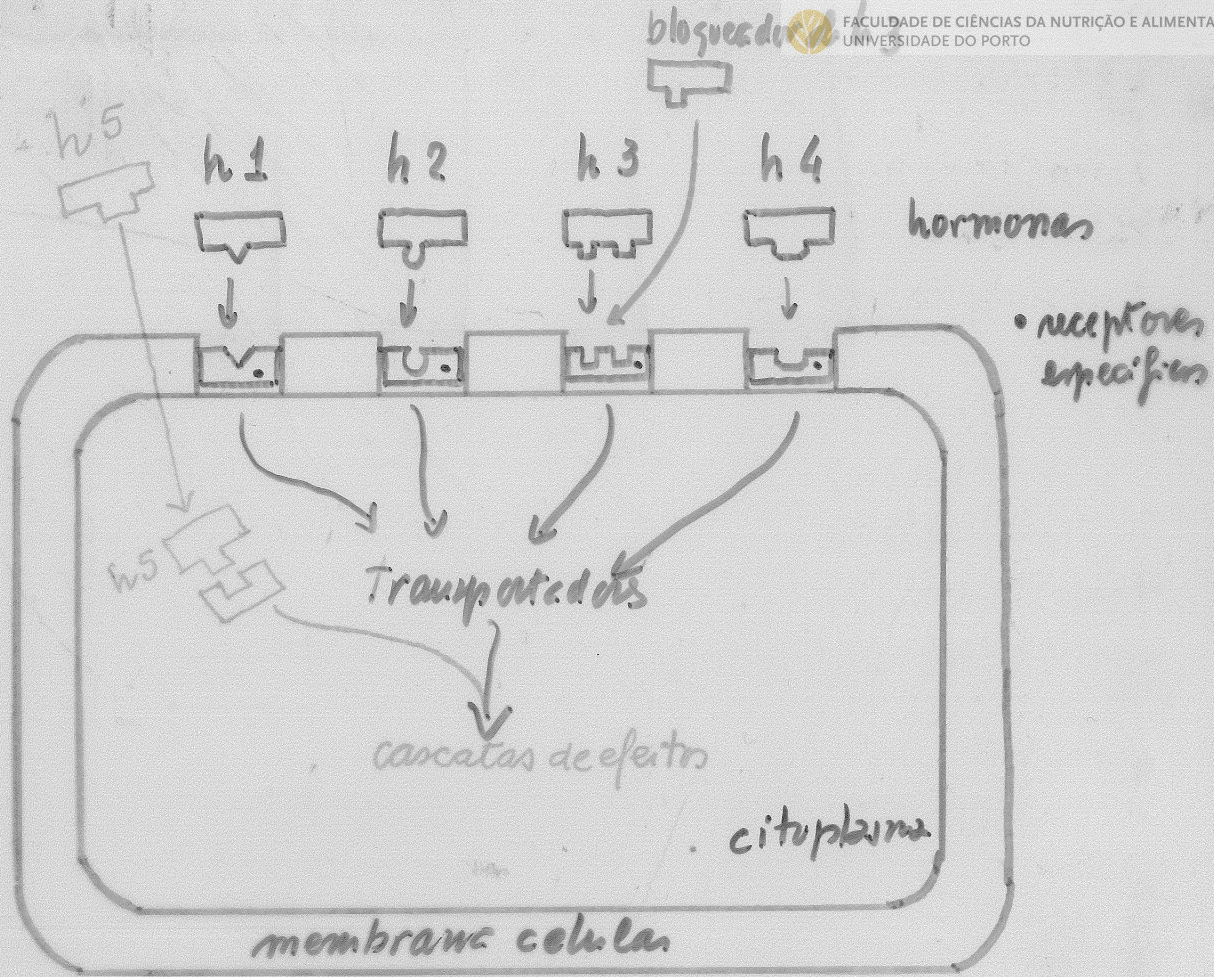 FACULDADE DE CIÊNCIAS DA NUTRIÇÃO E ALIMENTA
UNIVERSIDADE DO PORTO
bloqueador
h5
h1
h2
h3
h4
hormonas
• receptores
específicos
h5
Transportadores
cascatas de efeitos
citoplasma
membrana celular